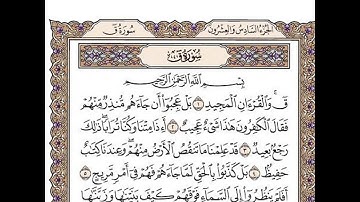 الجزء السادس والعشرون
سورة ق
سورة ق
بسم الله الرحمن الرحيم
ق والقرءان المجيد ١ بل عجبوا أن جاءهم منذر منهم
فقال الكفرون هذا شيء عجيب ٢ أءذا متنا وكنا ترابا ذلك
رجع بعيد ٣ قد علمنا ما تنقص الأرض منهم وعندنا كتب
حفيظ ٤ بل كذبوا بالحق لما جاءهم فهم في أمر مريج ٥
أفلم ينظروا إلى السماء فوقهم كيف بنينها وزينها